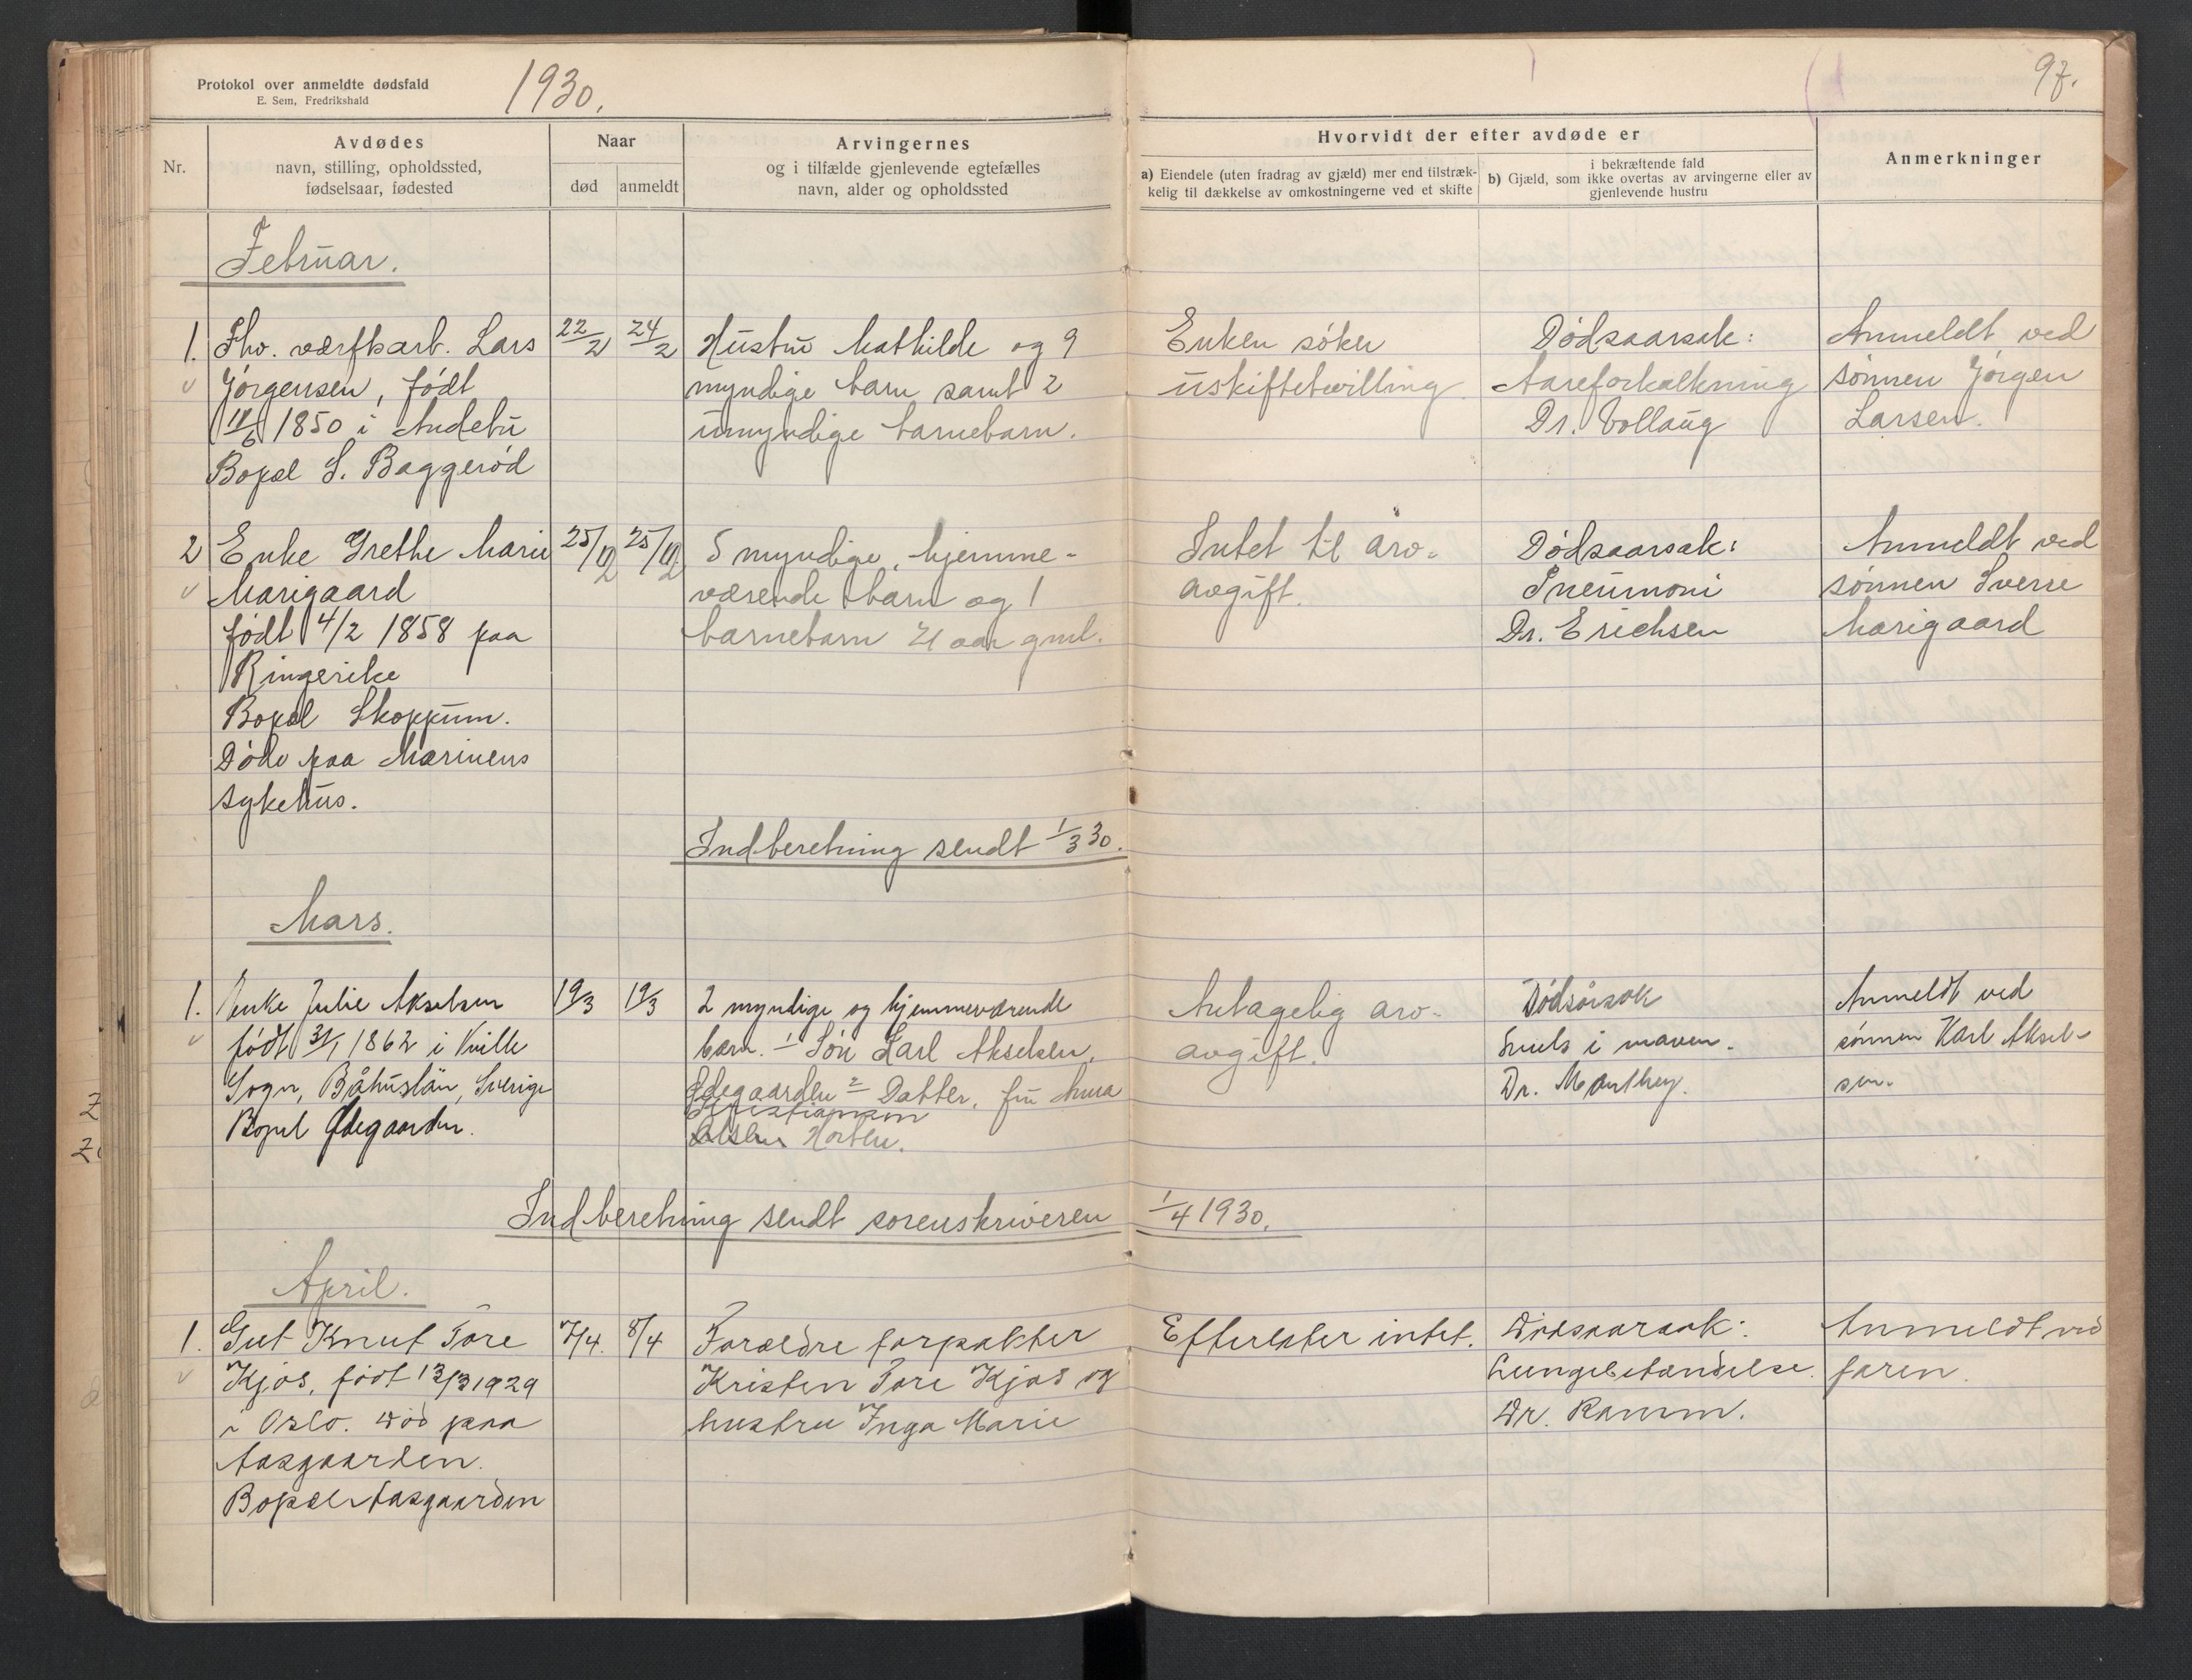 Protokol over anmeldte dødsfald
E. Sem, Fredrikshald
1930.
97.
Nr.
Avdødes
navn, stilling, opholdssted,
fødselsaar, fødested
Naar
død
anmeldt
Arvingernes
og i tilfælde gjenlevende egtefælles
navn, alder og opholdssted
Hvorvidt der efter avdøde er
a) Eiendele (uten fradrag av gjæld) mer end tilstræk-
kelig til dækkelse av omkostningerne ved et skifte
i bekræftende fald
b) Gjæld, som ikke overtas av arvingerne eller av
gjenlevende hustru
Anmerkninger
Februar.
1. Fhv. verftsarb. Lars
Jørgensen, født
11/6 1850 i Andebu
Bopæl S. Baggerød
22/2
24/2
Hustru Mathilde og 9
myndige barn samt 2
umyndige barnebarn.
Enken søker
uskiftebevilling
Dødsaarsak:
Aareforkalkning
Dr. Vollaug
Anmeldt ved
sønnen Jørgen
Larsen.
2 Enke Grethe Marie
Marigaard
født 4/2 1858 paa
Ringerike
Bopæl Skoppum.
Døde paa Marinens
sykehus.
25/2
25/2
5 myndige, hjemme-
værende barn og 1
barnebarn 21 aar gml.
Intet til arv-
avgift.
Dødsaarsak:
Pneumoni
Dr. Erichsen
Anmeldt ved
sønnen Sverre
Marigaard
Indberetning sendt 1/3 30.
Mars.
1. Enke Julie Akselsen
født 31/1 1862 i Kville
Sogn, Båhuslän, Sverige
Bopæl Ødegaarden.
19/3
19/3
2 myndige og hjemmeværende
barn. 1 Søn Karl Akselsen,
Ødegaarden 2 Datter, fru Anna
Kristiansen
Horten.
Antagelig arv-
avgift.
Dødsårsak
Kreft i maven.
Dr. Manthey.
Anmeldt ved
sønnen Karl Aksel-
sen.
Indberetning sendt sorenskriveren 1/4 1930.
April.
1. Gut Knut Tore
Kjos, født 13/3 1929
i Oslo. Død paa
Aasgaarden.
Bopæl Aasgaarden
7/4.
8/4
Forældre forpakter
Kristen Tore Kjos og
hustru Inga Marie
Efterlater intet.
Dødsaarsak:
Lungebetændelse.
Dr. Ramm.
Anmeldt ved
faren.